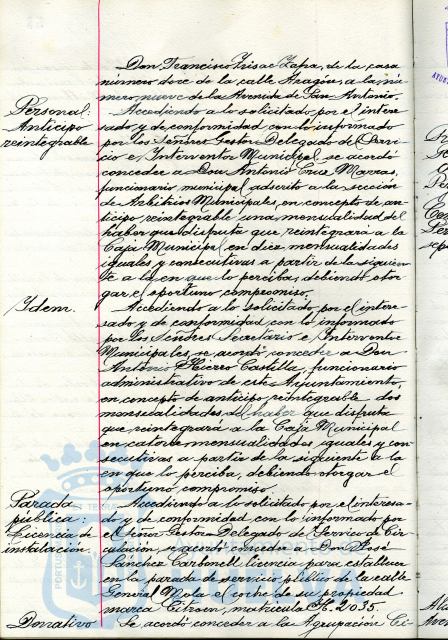 Don Francisco Frisac Zapa, de la casa
número doce de la calle Aragón, a la nú-
mero nueve de la Avenida de San Antonio.
Personal:
Anticipo
reintegrable
Accediendo a lo solicitado por el intere-
sado y de conformidad con lo informado
por los Señores Gestor Delegado de Servi-
cio e Interventor Municipal, se acordó
conceder a Don Antonio Cruz Marras,
funcionario municipal adscrito a la sección
de Arbitrios Municipales, en concepto de an-
ticipo reintegrable una mensualidad del
haber que disfruta que reintegrará a la
Caja Municipal en diez mensualidades
iguales y consecutivas a partir de la siguien-
te a la en que lo perciba, debiendo otor-
gar el oportuno compromiso.
Idem.
Accediendo a lo solicitado por el intere-
sado y de conformidad con lo informado
por los Señores Secretario e Interventor
Municipales, se acordó conceder a Don
Antonio Huerco Castilla, funcionario
administrativo de este Ayuntamiento,
en concepto de anticipo reintegrable dos
mensualidades del haber que disfruta
que reintegrará a la Caja Municipal
en catorce mensualidades iguales y con-
secutivas a partir de la siguiente a la
en que lo perciba, debiendo otorgar el
oportuno compromiso.
Parada
pública:
Licencia de
instalación
Accediendo a lo solicitado por el interesa-
do y de conformidad con lo informado por
el Señor Gestor Delegado de Servicio de Cir-
culación se acordó conceder a D. José
Sánchez Carbonell licencia para establecer
en la parada de servicio público de la calle
General Mola el coche de su propiedad
marca Citroen, matrícula H. 2035.
Donativo
Se acordó conceder a la Agrupación Ci-